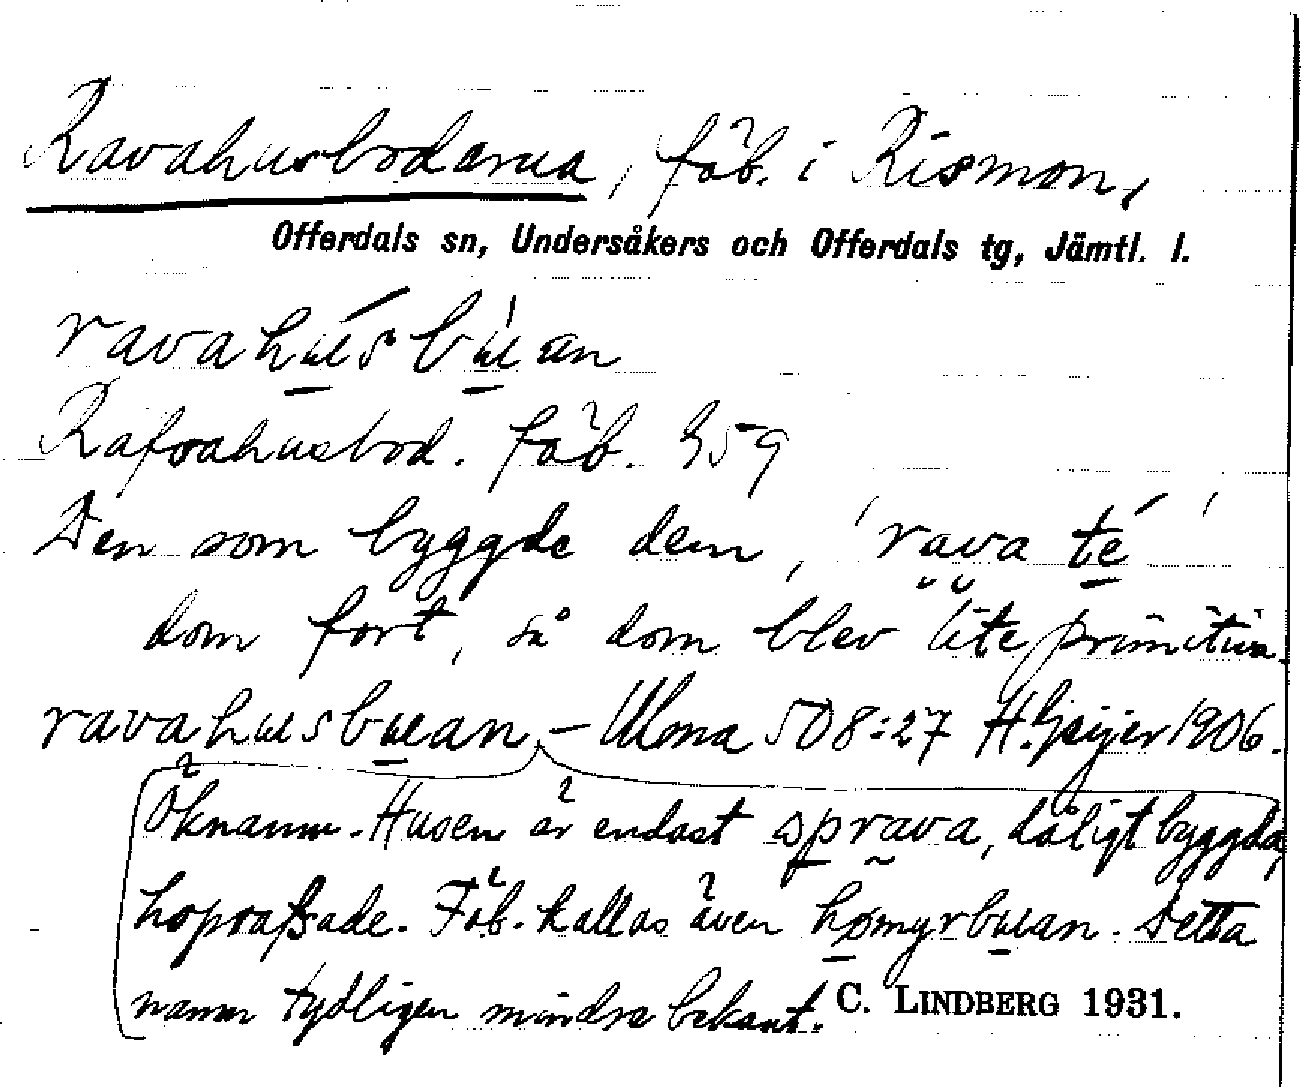 Ravahusbodarna, fäb. i Rismon,
Offerdals sn, Undersåkers och Offerdals tg, Jämtl. l.
ravahúsbuan
Rafvahusbod. fäb. 359
Den som byggde dem, 'rava té'
dom fort, så dom blev lite primitiva.
ravahusbuan – Ulma 508:27 H. Geijer 1906.
Öknamn. Husen är endast sprava, dåligt byggda,
hoprafsade. Fäb. kallas även hømyrbuan. Detta
namn tydligen mindre bekant.
C. LINDBERG 1931.